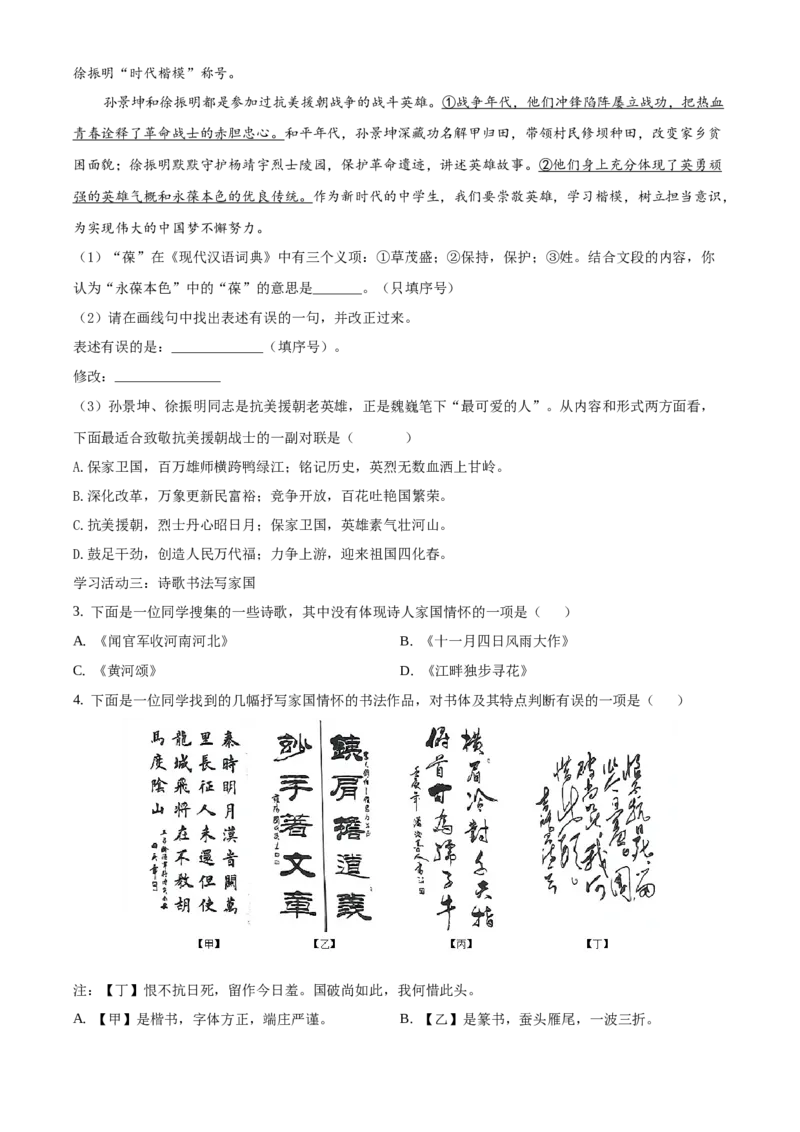 徐振明“时代楷模”称号。
孙景坤和徐振明都是参加过抗美援朝战争的战斗英雄。①战争年代，他们冲锋陷阵屡立战功，把热血
青春诠释了革命战士的赤胆忠心。和平年代，孙景坤深藏功名解甲归田，带领村民修坝种田，改变家乡贫
困面貌；徐振明默默守护杨靖宇烈士陵园，保护革命遗迹，讲述英雄故事。②他们身上充分体现了英勇顽
强的英雄气概和永葆本色的优良传统。作为新时代的中学生，我们要崇敬英雄，学习楷模，树立担当意识，
为实现伟大的中国梦不懈努力。
（1）“葆”在《现代汉语词典》中有三个义项：①草茂盛；②保持，保护；③姓。结合文段的内容，你
认为“永葆本色”中的“葆”的意思是_______。（只填序号）
（2）请在画线句中找出表述有误的一句，并改正过来。
表述有误的是：_____________（填序号）。
修改：_______________
（3）孙景坤、徐振明同志是抗美援朝老英雄，正是魏巍笔下“最可爱的人”。从内容和形式两方面看，
下面最适合致敬抗美援朝战士的一副对联是（ ）
A.保家卫国，百万雄师横跨鸭绿江；铭记历史，英烈无数血洒上甘岭。
B.深化改革，万象更新民富裕；竞争开放，百花吐艳国繁荣。
C.抗美援朝，烈士丹心昭日月；保家卫国，英雄素气壮河山。
D.鼓足干劲，创造人民万代福；力争上游，迎来祖国四化春。
学习活动三：诗歌书法写家国
3. 下面是一位同学搜集的一些诗歌，其中没有体现诗人家国情怀的一项是（ ）
A. 《闻官军收河南河北》 B. 《十一月四日风雨大作》
C. 《黄河颂》 D. 《江畔独步寻花》
4. 下面是一位同学找到的几幅抒写家国情怀的书法作品，对书体及其特点判断有误的一项是（ ）
秦時明月漢音關萬
里長征人未還但使
龍城飛将在不教胡
馬度陰山
鐵肩擔道義
妙手著文章
横眉冷對千夫指
俯首甘為孺子牛
恨不抗日死，留
作今日羞。國
破尚如此，我何
惜此頭。
【甲】 【乙】 【丙】 【丁】
注：【丁】恨不抗日死，留作今日羞。国破尚如此，我何惜此头。
A. 【甲】是楷书，字体方正，端庄严谨。 B. 【乙】是篆书，蚕头雁尾，一波三折。